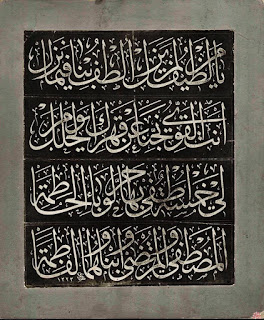 يا لطيفا لم يزل الطف بنا فيما نزل
أنت القوي نجنا عن قهرك يوم الخلل
لي خمسة أطفي بها حر الوباء الحاطمة
المصطفى والمرتضى وابناهما والفاطمة